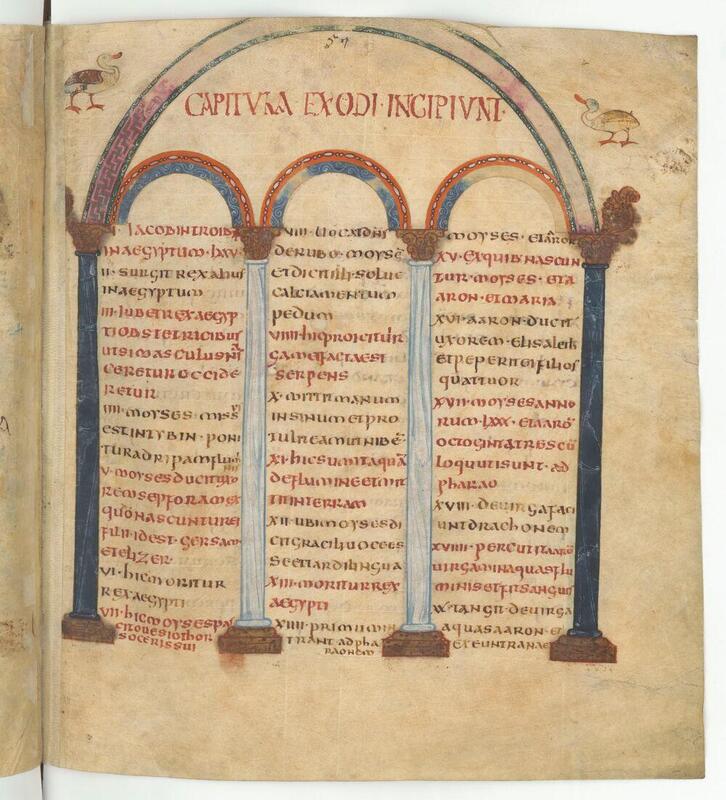 CAPITULA EXODI·INCIPIUNT·
I· IACOB INTROIBIT
IN AEGYPTUM· LXXV
II· SURGIT REX ALIUS
IN AEGYPTUM
III· IUBET REX AEGYP
TI OBSTETRICIBUS
UT SI MASCULUS
CERETUR OCCIDE
RETUR
IIII· MOYSES MISSUS
EST IN TYBIN· PONI
TUR AD RIPAM FLUM
V· MOYSES DUCIT UXO
REM SEPFORAM EX
QUO NASCUNTUR EI
FILII IDEST GERSAM
ET ELIZER
VI· HIC MORITUR
REX AEGYPTI
VII· HIC MOYSES
OVES IOTHOR
SOCERIS SUI
VIII·
DE RUBO· MOYSĒ
ET DICIT ILLI· SOLUE
CALCIAMENTUM
PEDUM
VIIII· HIC PROICITUR
FACTA EST
SERPENS
X· MITTIT MANUM
IN SINUM ET PRO
TULIT EAM UT NIBĒ·
XI· HIC SUMIT AQUĀ
DE FLUMINE ET MIT
TIT IN TERRAM
XII· UBI MOYSES DI
CIT GRACILI UOCE ES
SE ET TARDI LINGUA
XIII· MORITUR REX
AEGYPTI
XIIII· PRIMUM IN
TRANT AD PHA
RAONEM
MOYSES· ET AARON
XV· EX QUIB NASCUN
TUR· MOYSES· ET A
ARON· ET MARIA
XVI· AARON· DUCIT
UXOREM· ELISABETH
ET PEPERIT EI FILIOS
QUATTUOR
XVII· MOYSES ANNO
RUM· LXXX· ET AARŌ
OCTOGINTA TRES CŪ
LOQUUTI SUNT· AD
PHARAO
XVIII· DE UIRGA FACI
UNT DRACHONEM
XVIIII· PERCUTIT AARŌ
UIRGAM IN AQUAS FLU
MINIS ET FIT SANGUIS
XX· TANGIT· DE UIRGA
AQUAS AARON· ET
EXEUNT RANAE